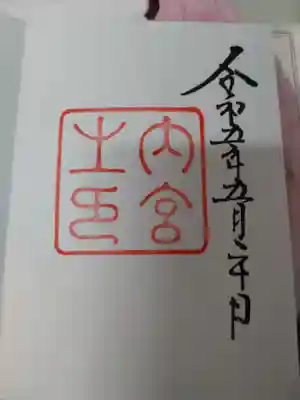 令和五年五月日
内宮
之印